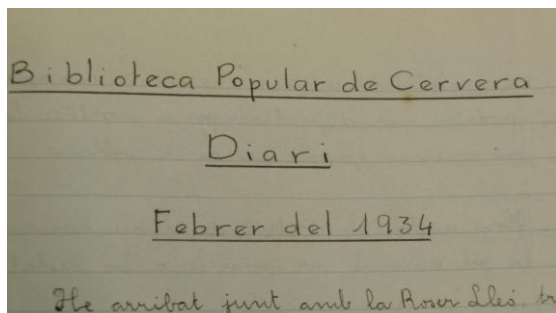 Biblioteca Popular de Cervera
Diari
Febrer del 1934
He arribat junt amb la Roser Lleó.